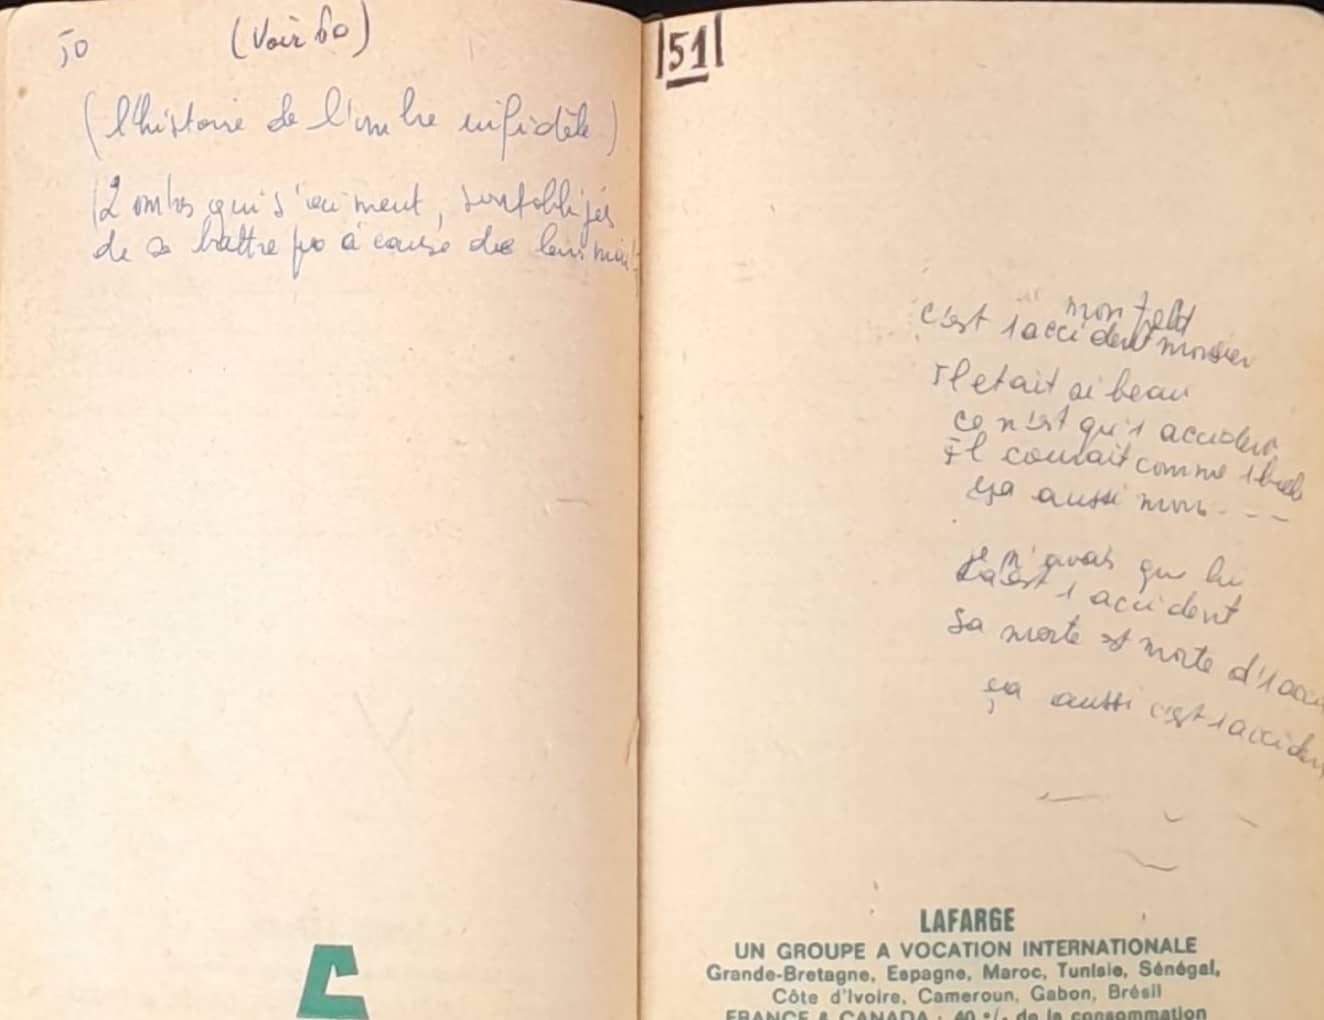 50 (Voir 60)
(l'histoire de l'ombre infidèle)
2 ombres qui s'aiment, sont obligés
de se battre à cause de leurs
|51|
mon
c'est 1 accident monsieur
Il etait si beau
ce n'est qu'1 accident
Il courait comme 1
ça aussi mons - - -
je n'avais que lu
c'est 1 accident
Sa morte est morte d'1 acci
ça aussi c'est 1 acciden
LAFARGE
UN GROUPE A VOCATION INTERNATIONALE
Grande-Bretagne, Espagne, Maroc, Tunisie, Sénégal,
Côte d'Ivoire, Cameroun, Gabon, Brésil
FRANCE & CANADA : 40 % de la consommation